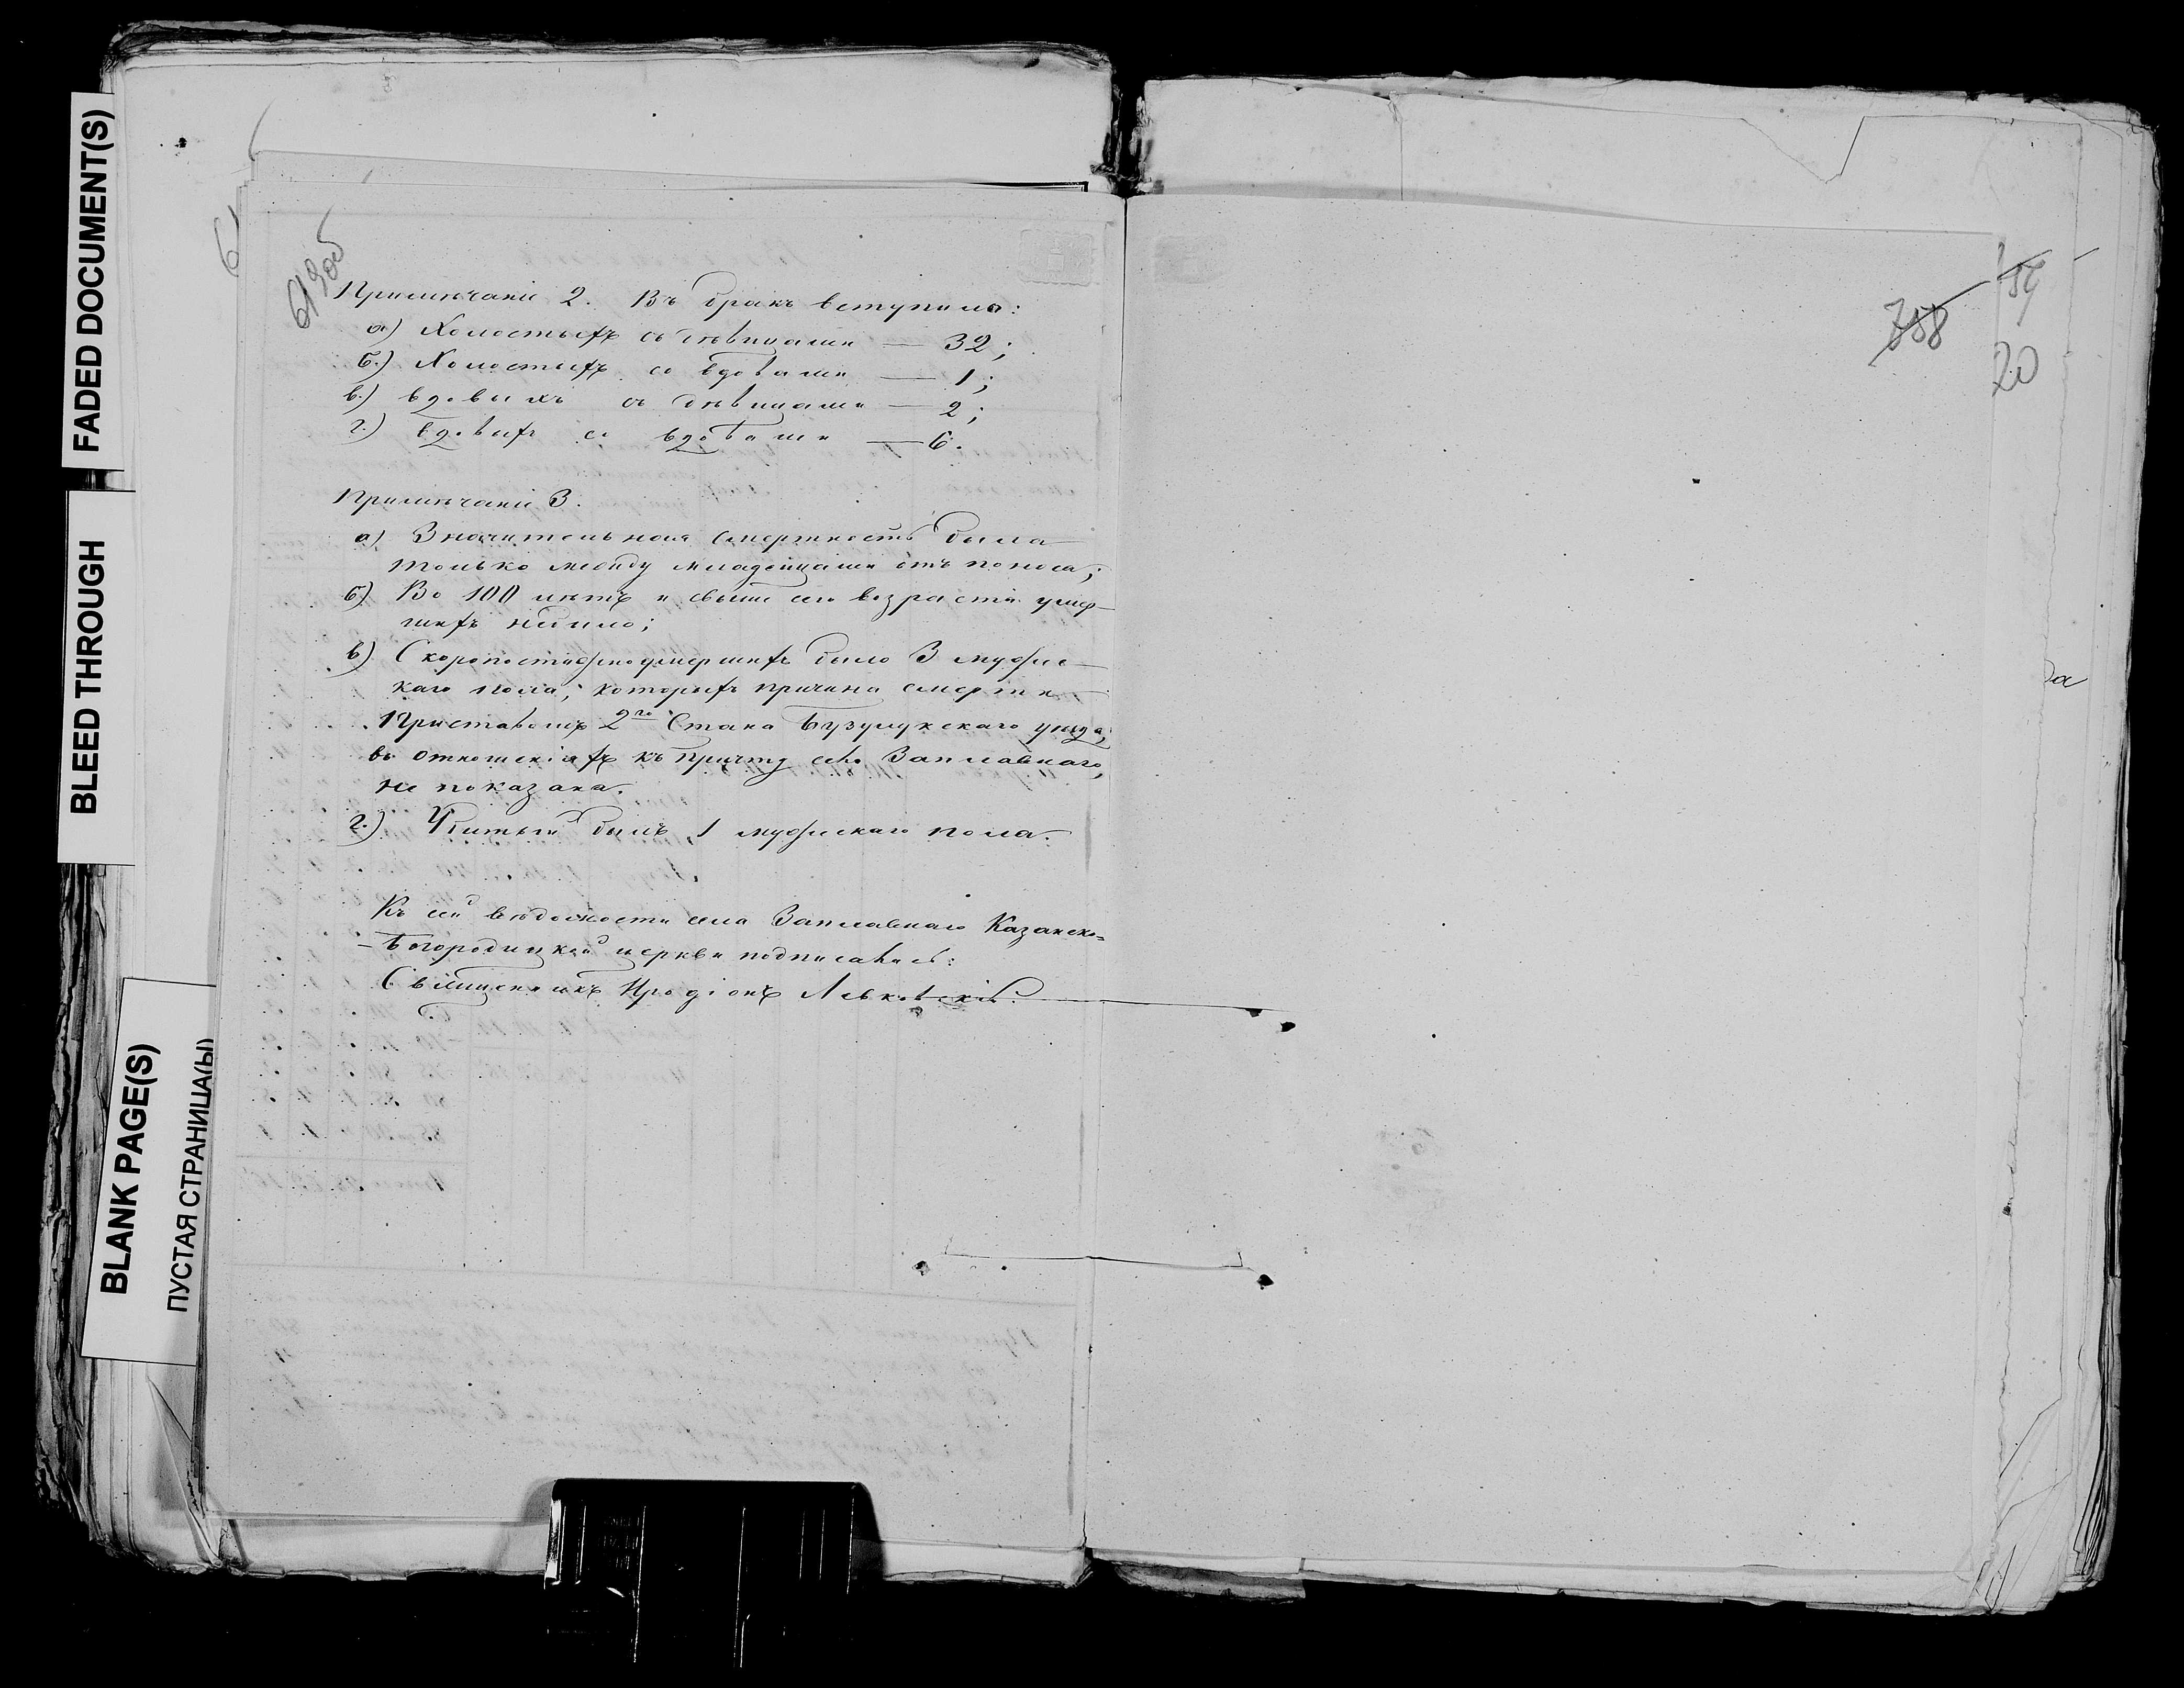 FADED DOCUMENT(S)
BLEED THROUGH
BLANK PAGE(S)
ПУСТАЯ СТРАНИЦА(Ы)
Примѣчаніе 2. Въ бракъ вступило:
а) Холостыхъ съ дѣвицами — 32;
б.) Холостыхъ со вдовами — 1;
в.) вдовыхъ съ дѣвицами — 2;
г.) вдовыхъ со вдовами — 6.
Примѣчаніе 3.
а) Значительная смертность была
только между младенцами отъ поноса;
б.) Во 100 лѣтъ и свыше сего возраста умер-
шихъ небыло;
в) Скоропостижноумершихъ было 3 мужес-
каго пола, которыхъ причина смерти
Приставомъ 2го Стана Бузулукскаго уѣзда,
въ отношеніяхъ къ причту села Заплавнаго,
не показана.
г.) Убитый былъ 1 мужескаго пола.
Къ сей вѣдомости села Заплавнаго Казанско-
-Богородицкой церкви подписались:
Священникъ Иродіонъ Левковскій.
788
59
20